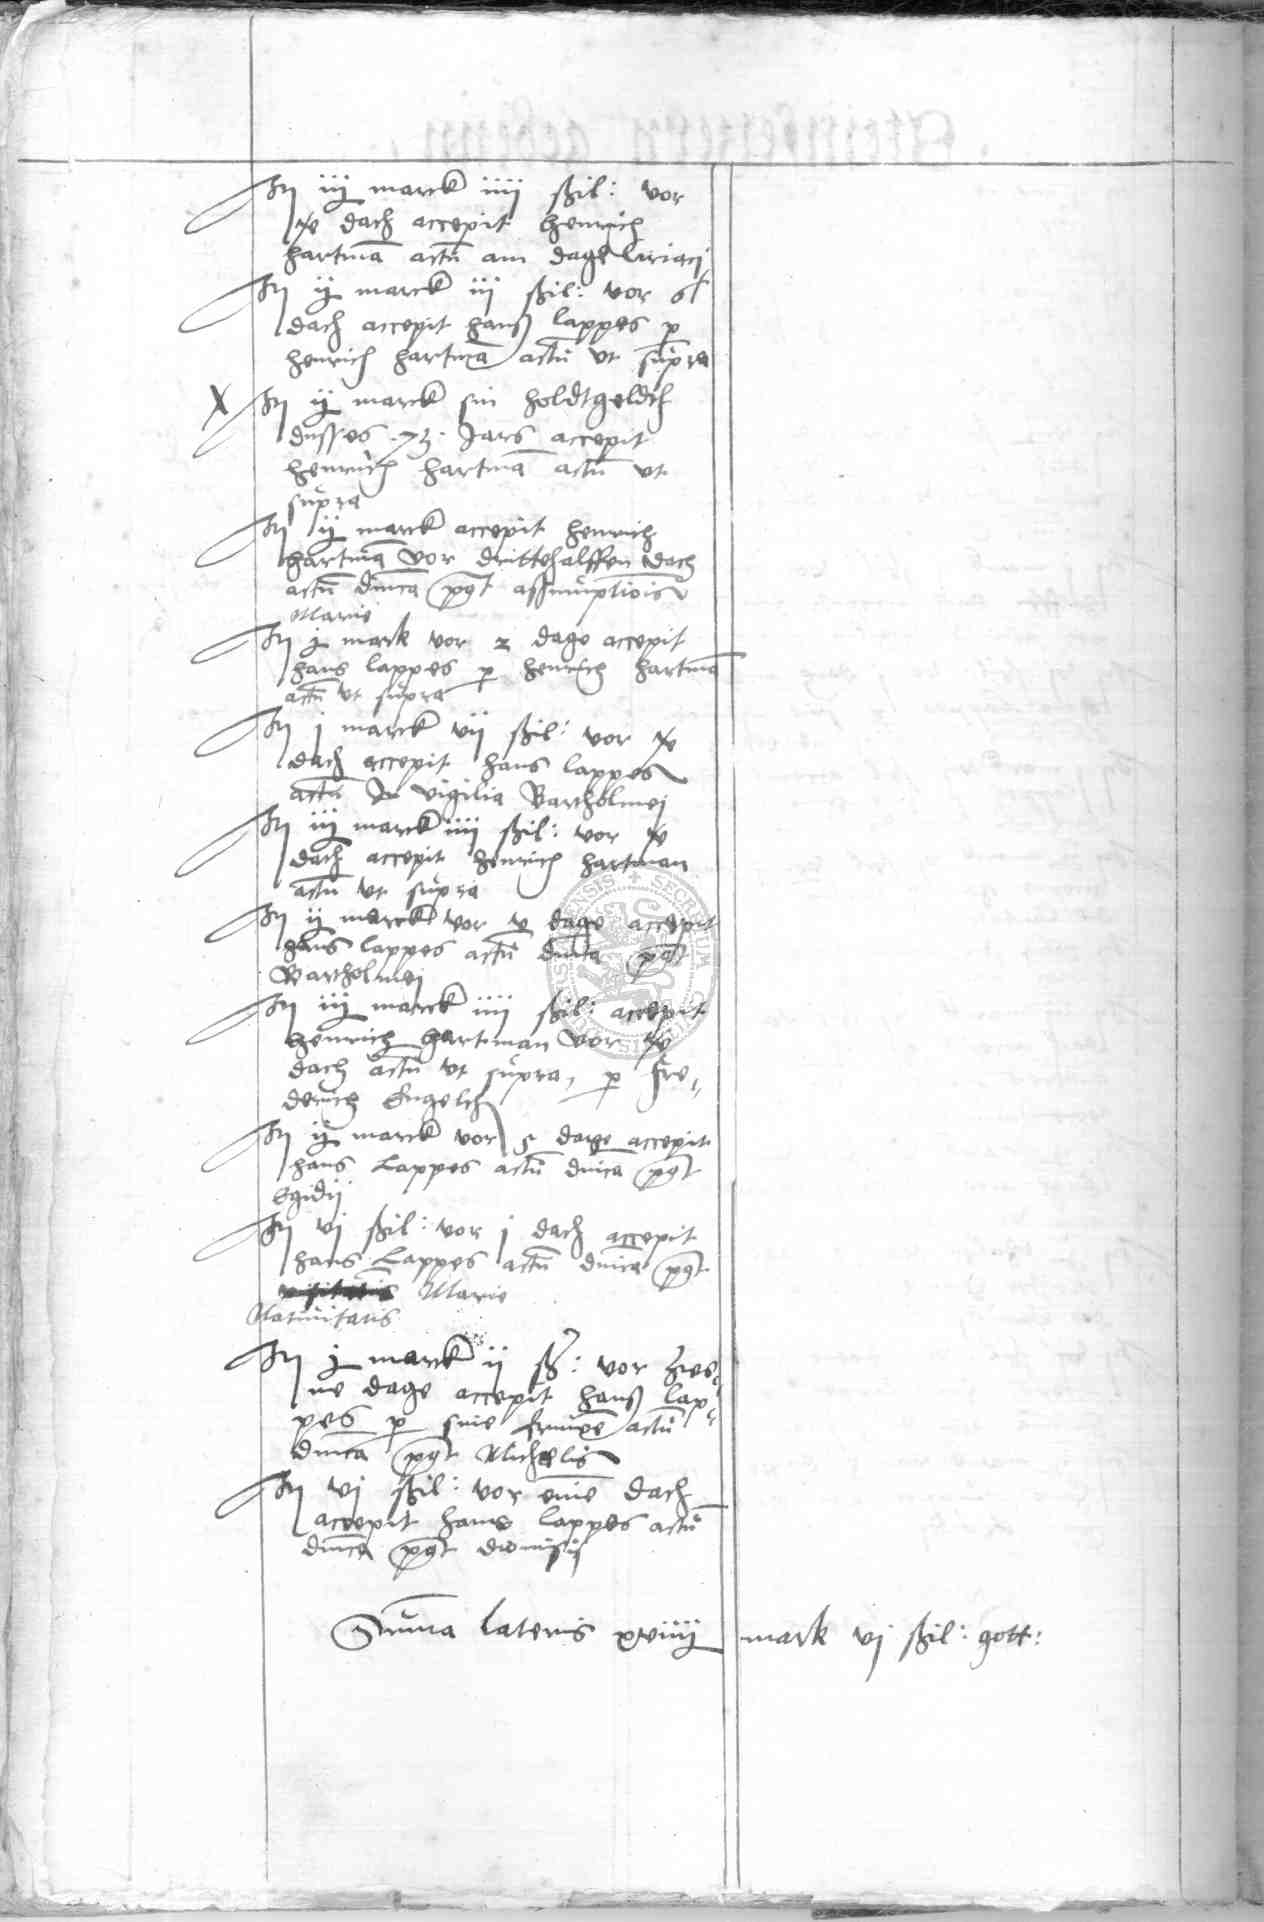 It iij marck iiij ßil: vor
xe dach accepit henrich
hartma actu am dage Ciriaci
It ij marck iij ßil: vor
dach accepit hanß lappes p
henrich hartma actu ut supra
X It ij marck sin holdtgeldt
dusses 73 Jars accepit
henrich hartma actu ut
supra
It ij marck accepit henrich
hartma vor drittehalffen dach
actu dnica pqt assumptiois
Marie
It j mark vor 2 dage accepit
hans lappes p henrich hartma
actu ut supra
It j marck vij ßil: vor
dach accepit hans lappes
actu In vigilia Bartholmej
It iij marck iiij ßil: vor xe
dach accepit henrich hartman
actu ut supra
It ij marck vor v dage accepit
hans lappes actu dnica pqt
Bartholmej
It iij marck iiij ßil: accepit
henrich hartman vor xe
dach actu ut supra, p fre-
derich Engelch
It ij marck vor 5 dage accepit
hans Lappes actu dnica pqt
Egidij
It vj ßil: vor j dach accepit
hans Lappes actu dnica pqt
Marie
Natiuitatis
It j marck ij ß: vor
ne dage accepit hanß lap-
pes p sine fruwe actu
dnica pqt Michelis
It vj ßil: vor eine dach
accepit hans lappes actu
dnica pqt dionisij
Suma lateris xviiij mark vj ßil: gott:
SECRETUM